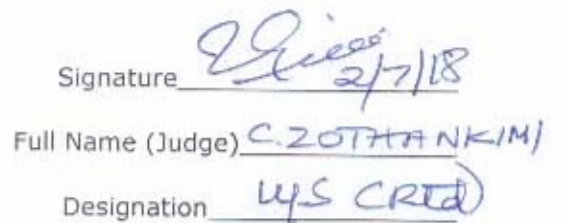 Signature 2/7/18
Full Name (Judge) C. ZOTHANKIMI
Designation U/S (Rtd)